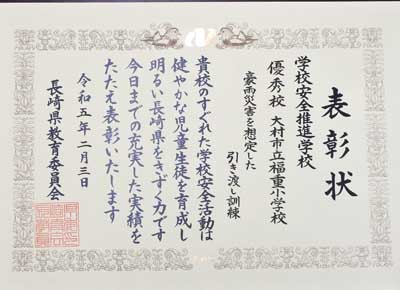 表彰状
学校安全推進学校
優秀校 大村市立福重小学校
豪雨災害を想定した
引き渡し訓練
貴校のすぐれた学校安全活動は
健やかな児童生徒を育成し
明るい長崎県をきずく力です
今日までの充実した実績を
たたえ表彰いたします
令和五年二月三日
長崎県教育委員会